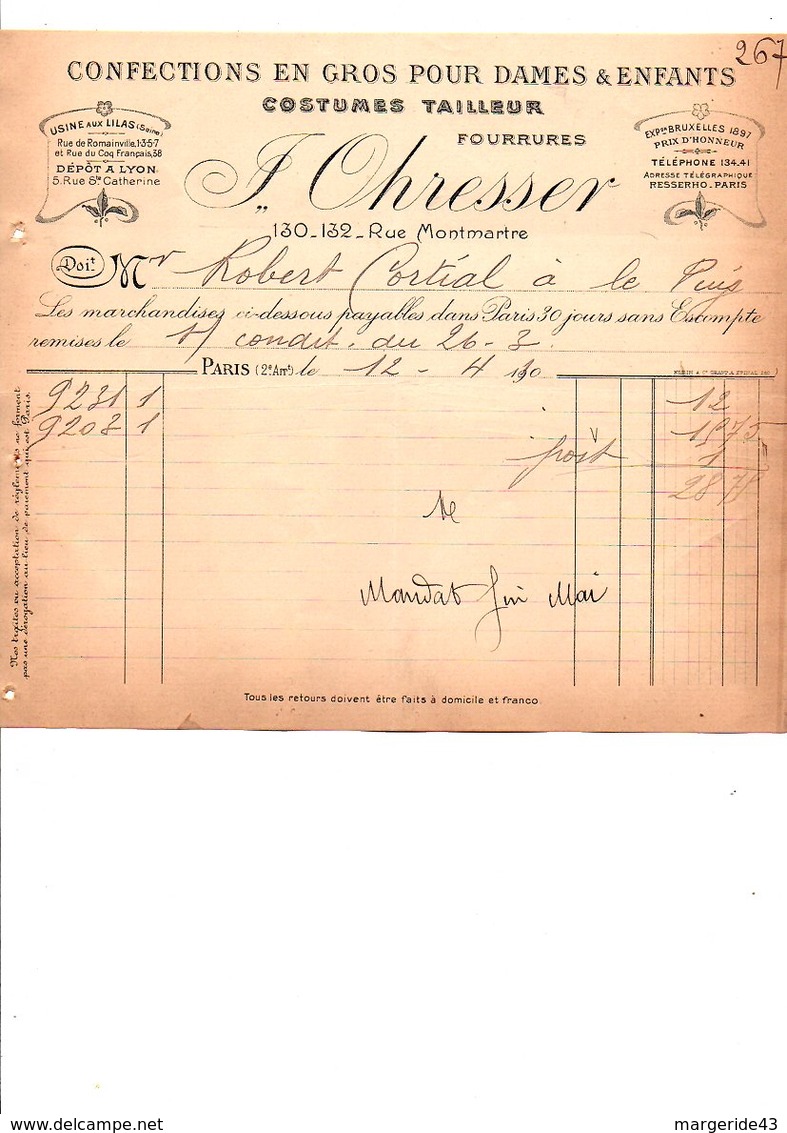 267
CONFECTIONS EN GROS POUR DAMES & ENFANTS
COSTUMES TAILLEUR
FOURRURES
USINE AUX LILAS (Seine)
Rue de Romainville, 1.3.5.7
et Rue du Coq Français, 38
DÉPÔT A LYON
5. Rue Ste Catherine
J. Ohresser
EXPon BRUXELLES 1897
PRIX D'HONNEUR
TÉLÉPHONE 134.41
ADRESSE TÉLÉGRAPHIQUE
RESSERHO_PARIS
130_132_Rue Montmartre
Doit Mr Robert Cortial à le Puy
Les marchandises ci-dessous payables dans Paris 30 jours sans Escompte
remises le condit. du 26-3.
PARIS (2e Arrt) le 12 - 4 190
9231 1 12
9203 1 1575
1
2875
Mandat fin Mai
Nos traites ou acceptation de règlements ne forment
pas une dérogation au lieu de paiement qui est Paris.
Tous les retours doivent être faits à domicile et franco.
delcampe.net
margeride43